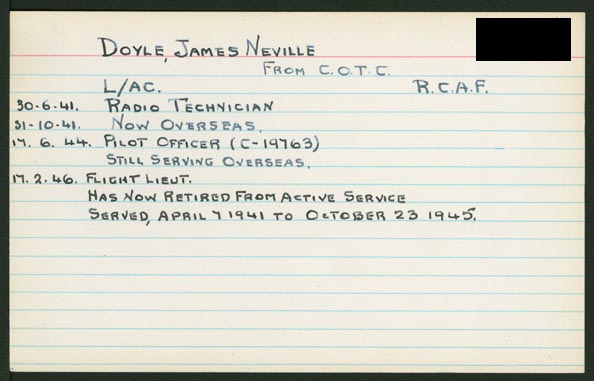 DOYLE, JAMES NEVILLE
FROM C.O.T.C.
L/AC. R.C.A.F.
30-6-41. RADIO TECHNICIAN
31-10-41. NOW OVERSEAS.
17. 6. 44. PILOT OFFICER (C-19763)
STILL SERVING OVERSEAS.
17.2.46. FLIGHT LIEUT.
HAS NOW RETIRED FROM ACTIVE SERVICE
SERVED, APRIL 7 1941 TO OCTOBER 23 1945.